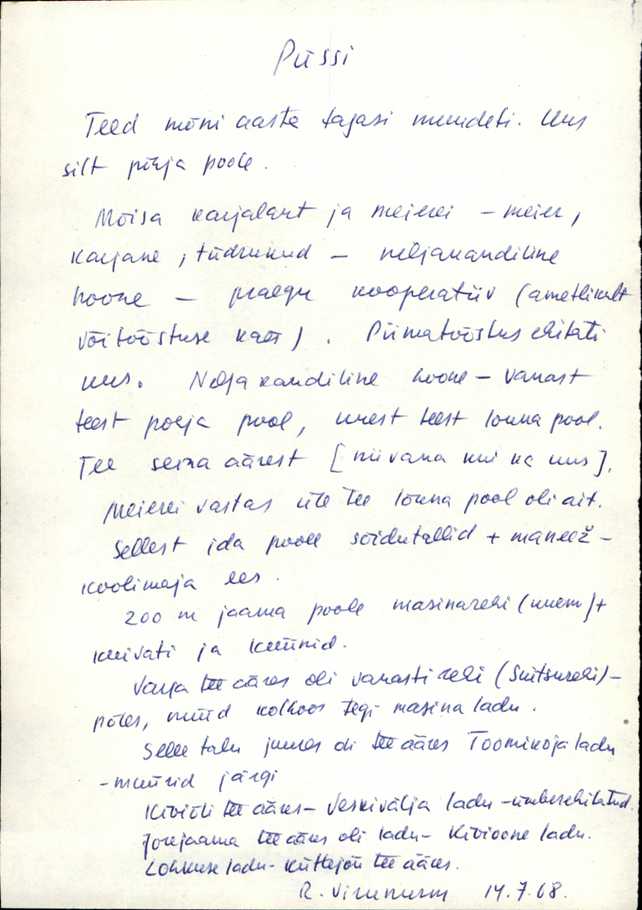 Püssi
Teed mõni aasta tagasi muudeti. Uus
silt põhja poole.
Mõisa karjalaut ja meierei – meier,
karjane, tüdrukud – neljakandiline
hoone – praegu kooperatiiv (ametlikult
võitööstuse käes). Piimatööstus ehitati
uus. Neljakandiline hoone – vanast
teest põhja pool, uuest teest lõuna pool.
Tee seina äärest [nii vana kui ka uus].
Meierei vastas üle tee lõuna pool oli ait.
Sellest ida poole sõidutallid + maneež –
koolimaja ees.
200 m jaama poole masinarehi (uuem) +
kuivati ja küünid.
Varja tee ääres oli vanasti rehi (suitsurehi) –
põles, nüüd kolhoos tegi masina ladu.
Selle talu juures oli tee ääres Toomikoja ladu
– müürid järgi
Kiviõli tee ääres – Veskivälja ladu – ümberehitatud.
Jõujaama tee ääres oli ladu – Kivioone ladu.
Lohkuse ladu – Küttejõu tee ääres.
R. Virunurm 14.7.68.